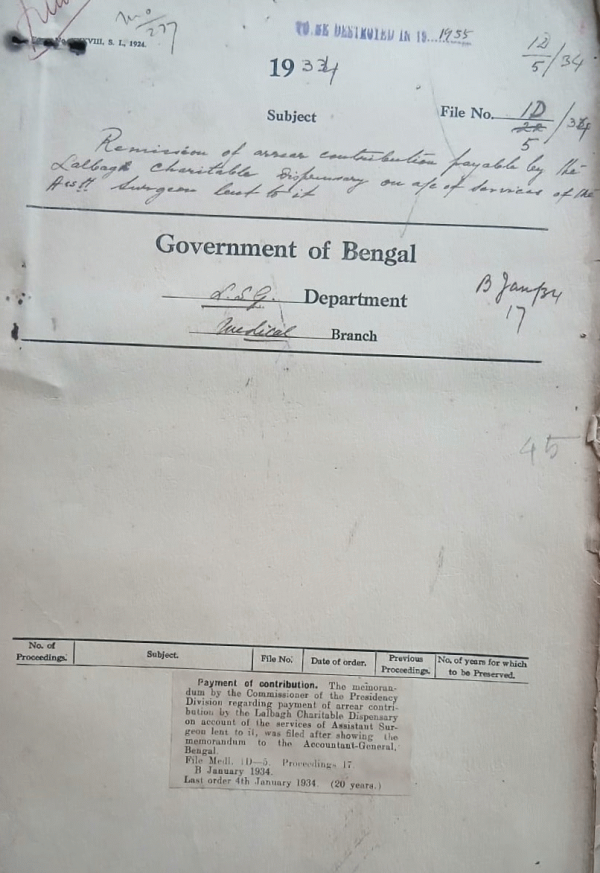 XVIII, S. I., 1924.
TO BE DESTROYED IN 19...1955
1D
5/34
1934
Subject
File No. 1D
5/34
Remission of arrear contribution payable by the
Lalbagh Charitable Dispensary on a/c of services of the
Asstt Surgeon lent to it
Government of Bengal
L.S.G. Department
Medical Branch
B Jany34
17
45
No. of Proceedings.
Subject.
File No.
Date of order.
Previous Proceedings.
No. of years for which to be Preserved.
Payment of contribution. The memoran-
dum by the Commissioner of the Presidency
Division regarding payment of arrear contri-
bution by the Lalbagh Charitable Dispensary
on account of the services of Assistant Sur-
geon lent to it, was filed after showing the
memorandum to the Accountant-General,
Bengal.
File Medl. 1D—5. Proceedings 17
B January 1934.
Last order 4th January 1934. (20 years.)